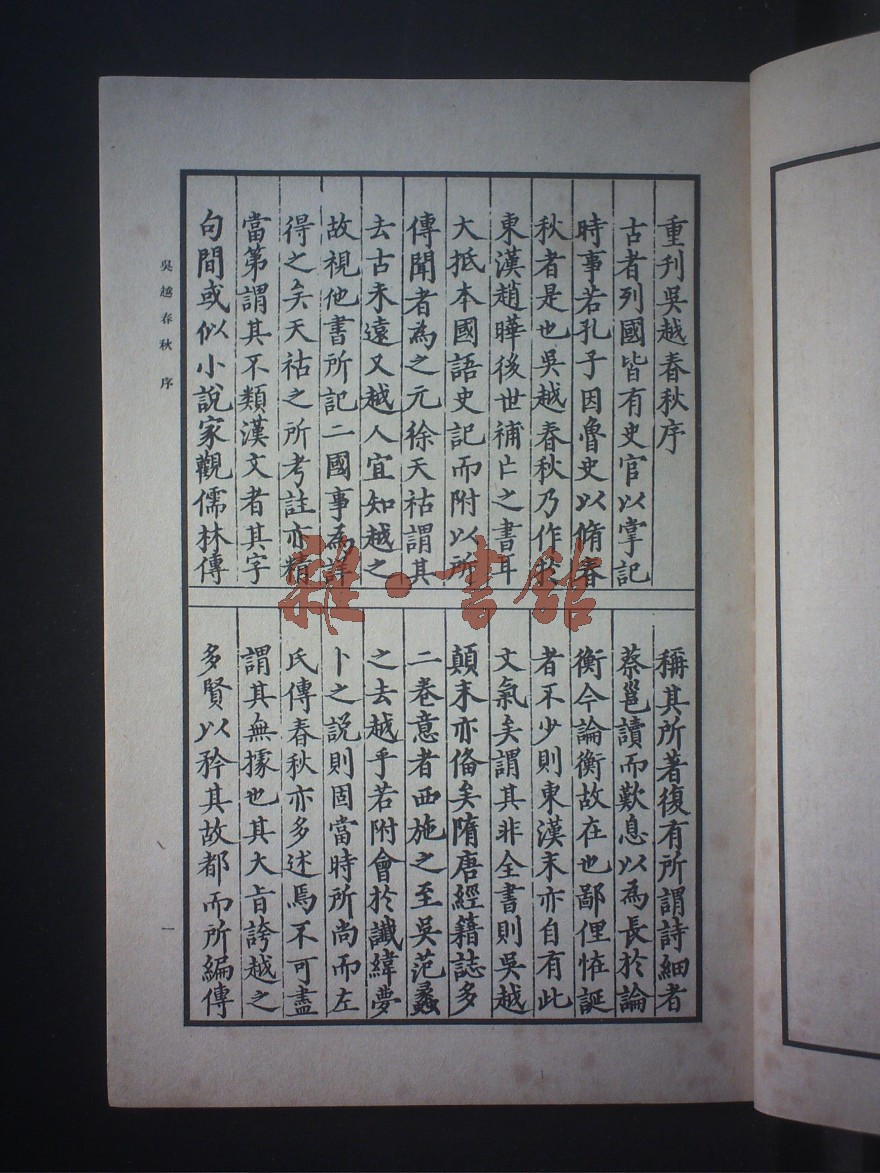 重刊吳越春秋序
古者列國皆有史官以掌記
時事若孔子因魯史以脩春
秋者是也吳越春秋乃作於
東漢趙曄後世補亡之書耳
大抵本國語史記而附以所
傳聞者為之元徐天祜謂其
去古未遠又越人宜知越之
故視他書所記二國事為詳
得之矣天祜之所考註亦精
當第謂其不類漢文者其字
句間或似小說家觀儒林傳
稱其所著復有所謂詩細者
蔡邕讀而歎息以為長於論
衡今論衡故在也鄙俚怪誕
者不少則東漢末亦自有此
文氣矣謂其非全書則吳越
顛末亦俻矣隋唐經籍誌多
二卷意者西施之至吳范蠡
之去越乎若附會於讖緯夢
卜之說則固當時所尚而左
氏傳春秋亦多述焉不可盡
謂其無據也其大旨誇越之
多賢以矜其故都而所編傳
吳越春秋 序
一
雜·書館